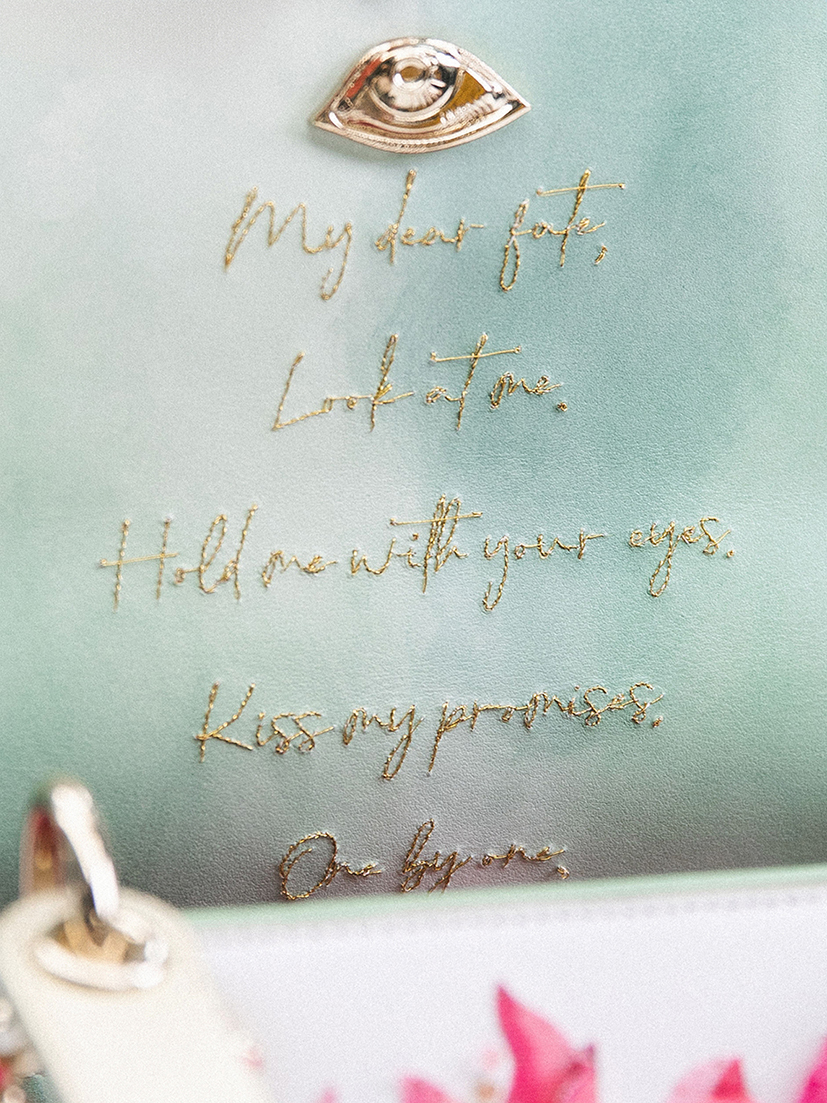 My dear fate,
Look at me.
Hold me with your eyes.
Kiss my promises.
One by one,